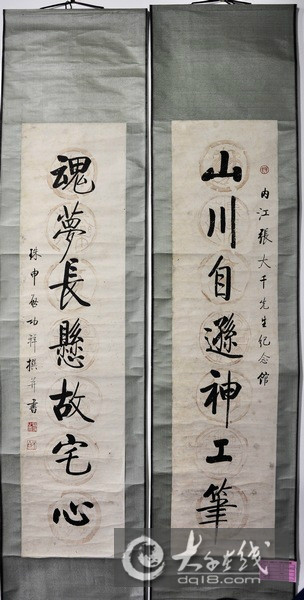 山川自遜神工筆
内江張大千先生纪念館
魂夢長懸故宅心
珠申啟功拜撰并書
大千在线
dq18.com